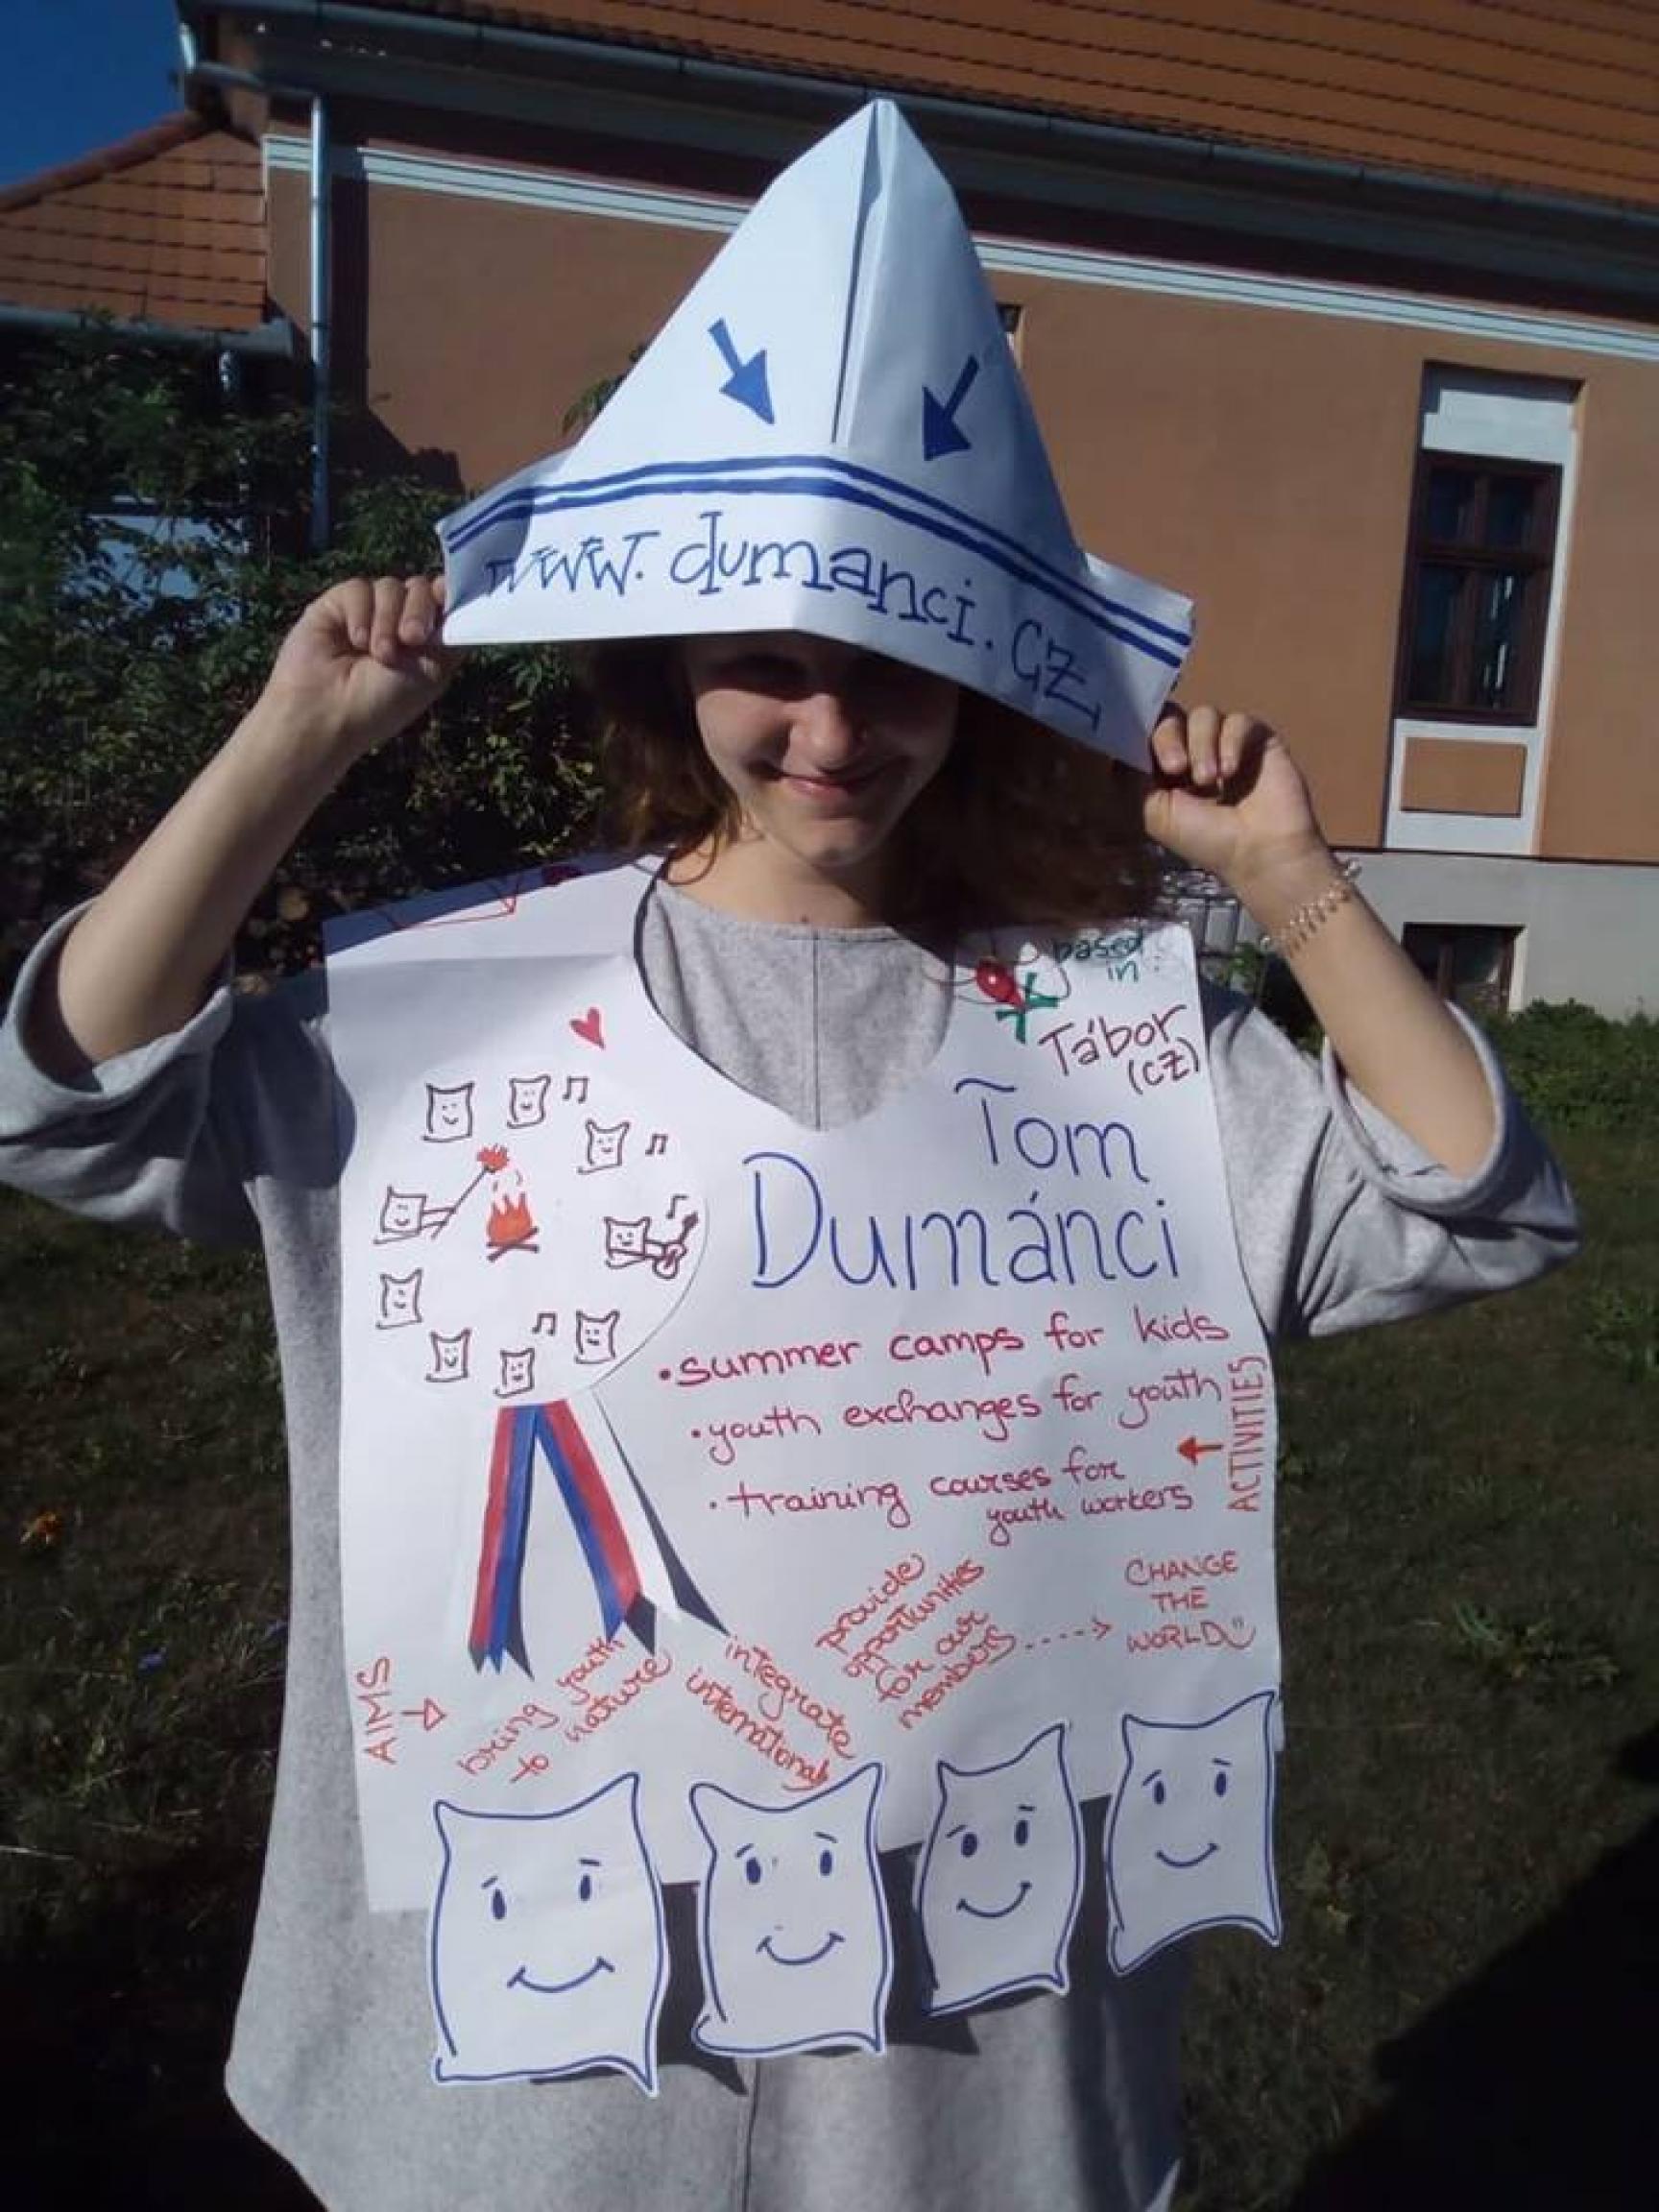 www.dumanci.cz
based
in:
Tábor
(CZ)
Tom
Dumánci
• summer camps for kids
• youth exchanges for youth
• training courses for
youth workers
ACTIVITIES
AIMS
bring youth
to nature
integrate
international
provide
opportunities
for our
members
CHANGE
THE
WORLD